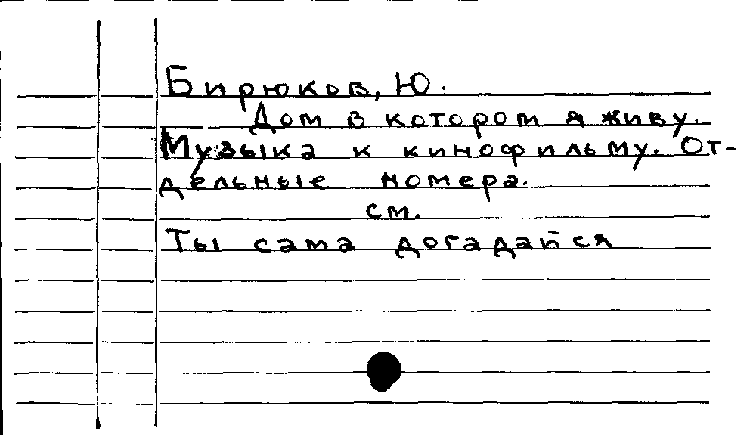 Бирюков, Ю.
Дом в котором я живу.
Музыка к кинофильму. От-
дельные номера.
см.
Ты сама догадайся